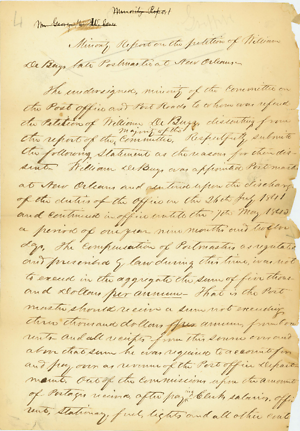 Minority Report
Mr George W
Minority Report on the petition of William
De Buys, late Postmaster at New Orleans.
The undersigned, minority of the Committee on
the Post office and Post Roads to whom was referred
the Petition of William De Buys dissenting from
the report of the majority of the Committee, Respectfully submits
the following Statement as the reasons for their dis-
sent. William De Buys was appointed Post master
at New Orleans and entered upon the discharge
of the duties of the office on the 26th July 1841
and continued in office until the 7th May 1843
a period of one year nine months and twelve
dys. The compensation of Postmasters as regulated
and prescribed by law during this time, was not
to exceed in the aggregate the sum of five thous-
and dollars per annum. That is the Post
master should receive a sum not exceeding
three thousand dollars per annum from box
rents and all receipts from this source over and
above that sum he was required to account for
and pay over as revenue of the Post office Depart-
ment. Out of the commissions upon the amount
of Postages received after pay'g Clerk salaries, office
rents, stationary, fuel, lights and all other cont